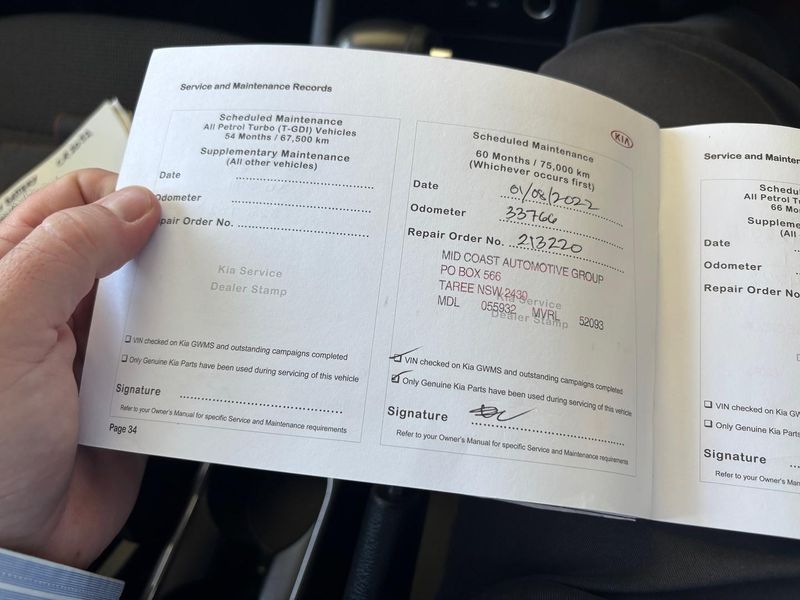 Service and Maintenance Records
Scheduled Maintenance
All Petrol Turbo (T-GDI) Vehicles
54 Months / 67,500 km
Supplementary Maintenance
(All other vehicles)
Date
Odometer
Repair Order No.
Kia Service
Dealer Stamp
❑ VIN checked on Kia GWMS and outstanding campaigns completed
❑ Only Genuine Kia Parts have been used during servicing of this vehicle
Signature
Refer to your Owner's Manual for specific Service and Maintenance requirements
Page 34
KIA
Scheduled Maintenance
60 Months / 75,000 km
(Whichever occurs first)
Date 01/08/2022
Odometer 33766
Repair Order No. 213220
MID COAST AUTOMOTIVE GROUP
PO BOX 566
TAREE NSW 2430
MDL 055932 MVRL 52093
Kia Service
Dealer Stamp
VIN checked on Kia GWMS and outstanding campaigns completed
Only Genuine Kia Parts have been used during servicing of this vehicle
Signature
Refer to your Owner's Manual for specific Service and Maintenance requirements
Service and Mainten
Schedu
All Petrol T
66 Mo
Suppleme
(All
Date
Odometer
Repair Order No
❑ VIN checked on Kia GW
❑ Only Genuine Kia Parts
Signature
Refer to your Owner's Man